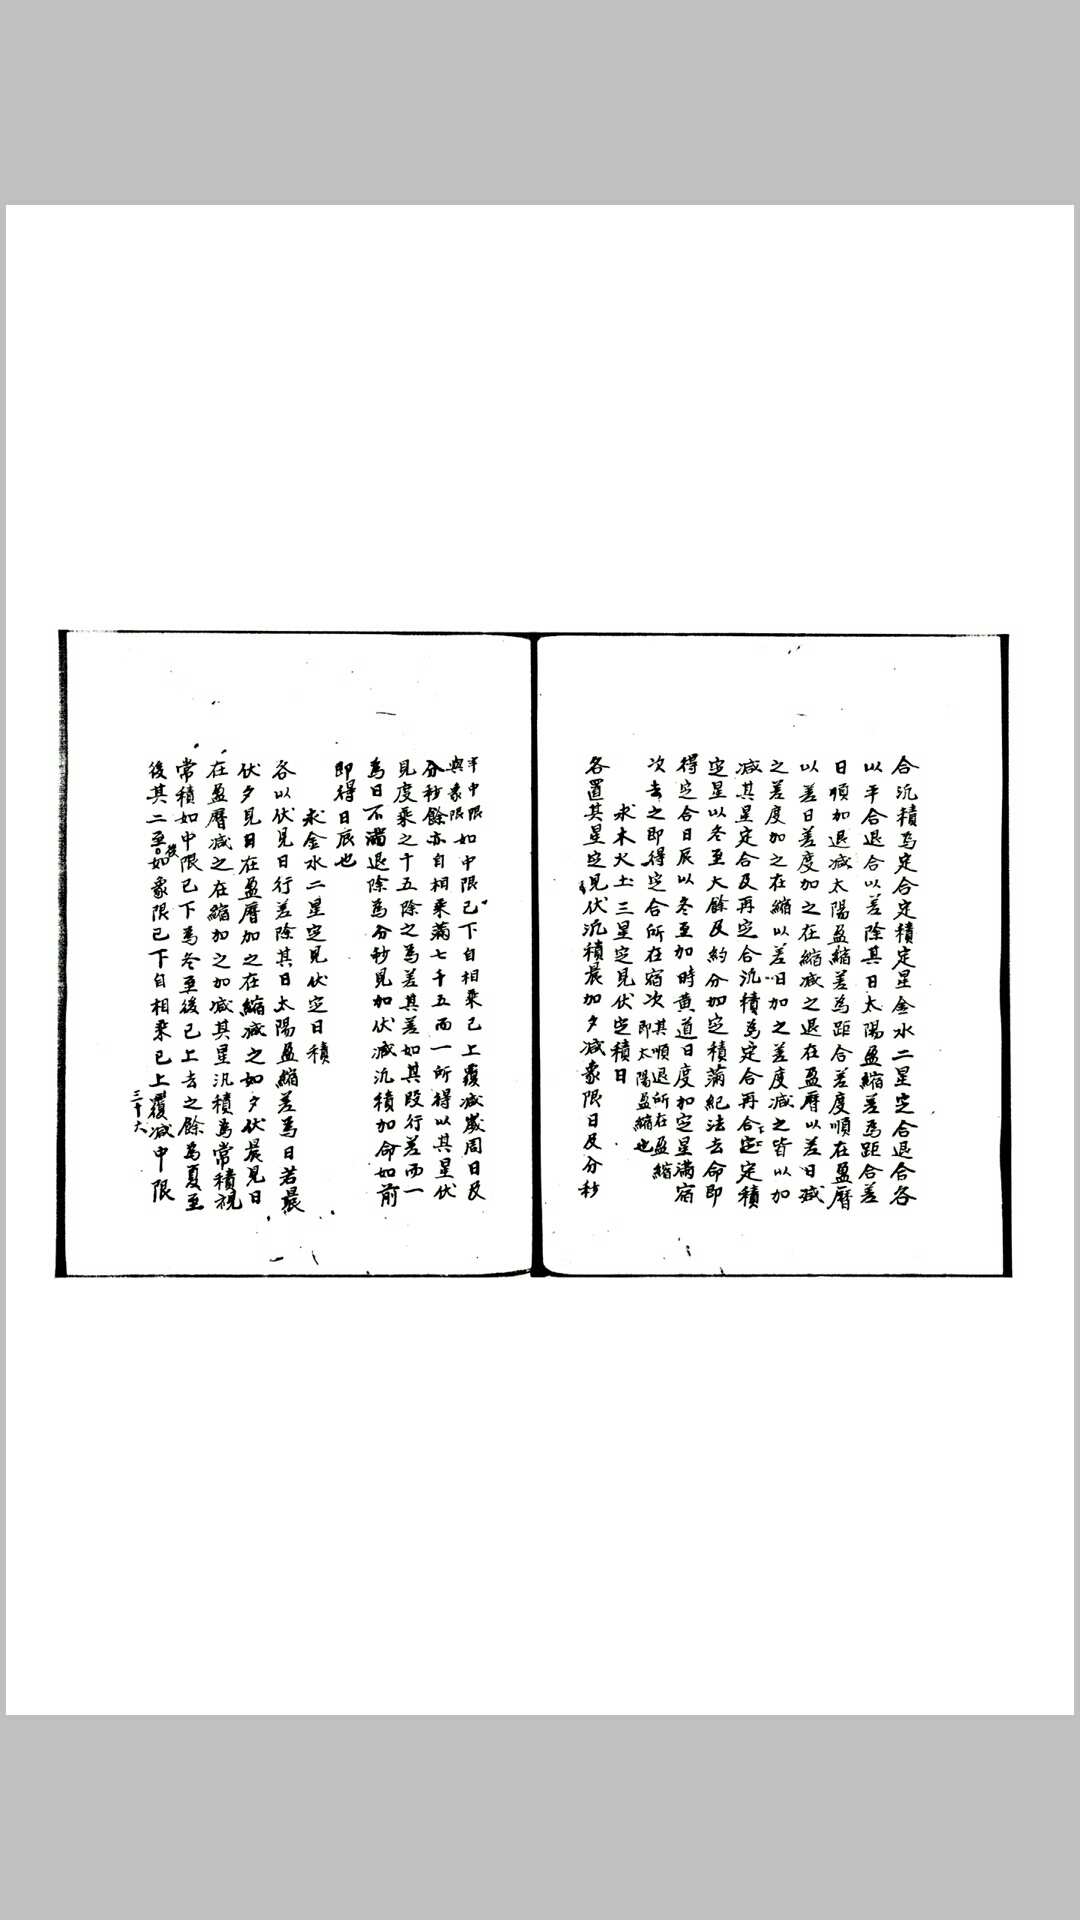 合汎積為定合定積定星金水二星定合退合各
以平合退合以差除其日太陽盈縮差為距合差
日順加退減太陽盈縮差為距合差度順在盈曆
以差日差度加之在縮減之退在盈曆以差日減
之差度加之在縮以差日加之差度減之皆以加
減其星定合及再定合汎積為定合再合定定積
定星以冬至大餘及約分加定積滿紀法去命即
得定合日辰以冬至加時黃道日度加定星滿宿
次去之即得定合所在宿次其順退所在盈縮
即太陽盈縮也
求木火土三星定見伏定積日
各置其星定見伏汎積晨加夕減象限日及分秒
半中限
與象限如中限已下自相乘已上覆減歲周日及
分秒餘亦自相乘滿七千五而一所得以其星伏
見度乘之十五除之為差其差如其段行差而一
為日不滿退除為分秒見加伏減汎積加命如前
即得日辰也
求金水二星定見伏定日積
各以伏見日行差除其日太陽盈縮差為日若晨
伏夕見日在盈曆加之在縮減之如夕伏晨見日
在盈曆減之在縮加之加減其星汎積為常積視
常積如中限已下為冬至後已上去之餘為夏至
後其二至後如象限已下自相乘已上覆減中限
三十六